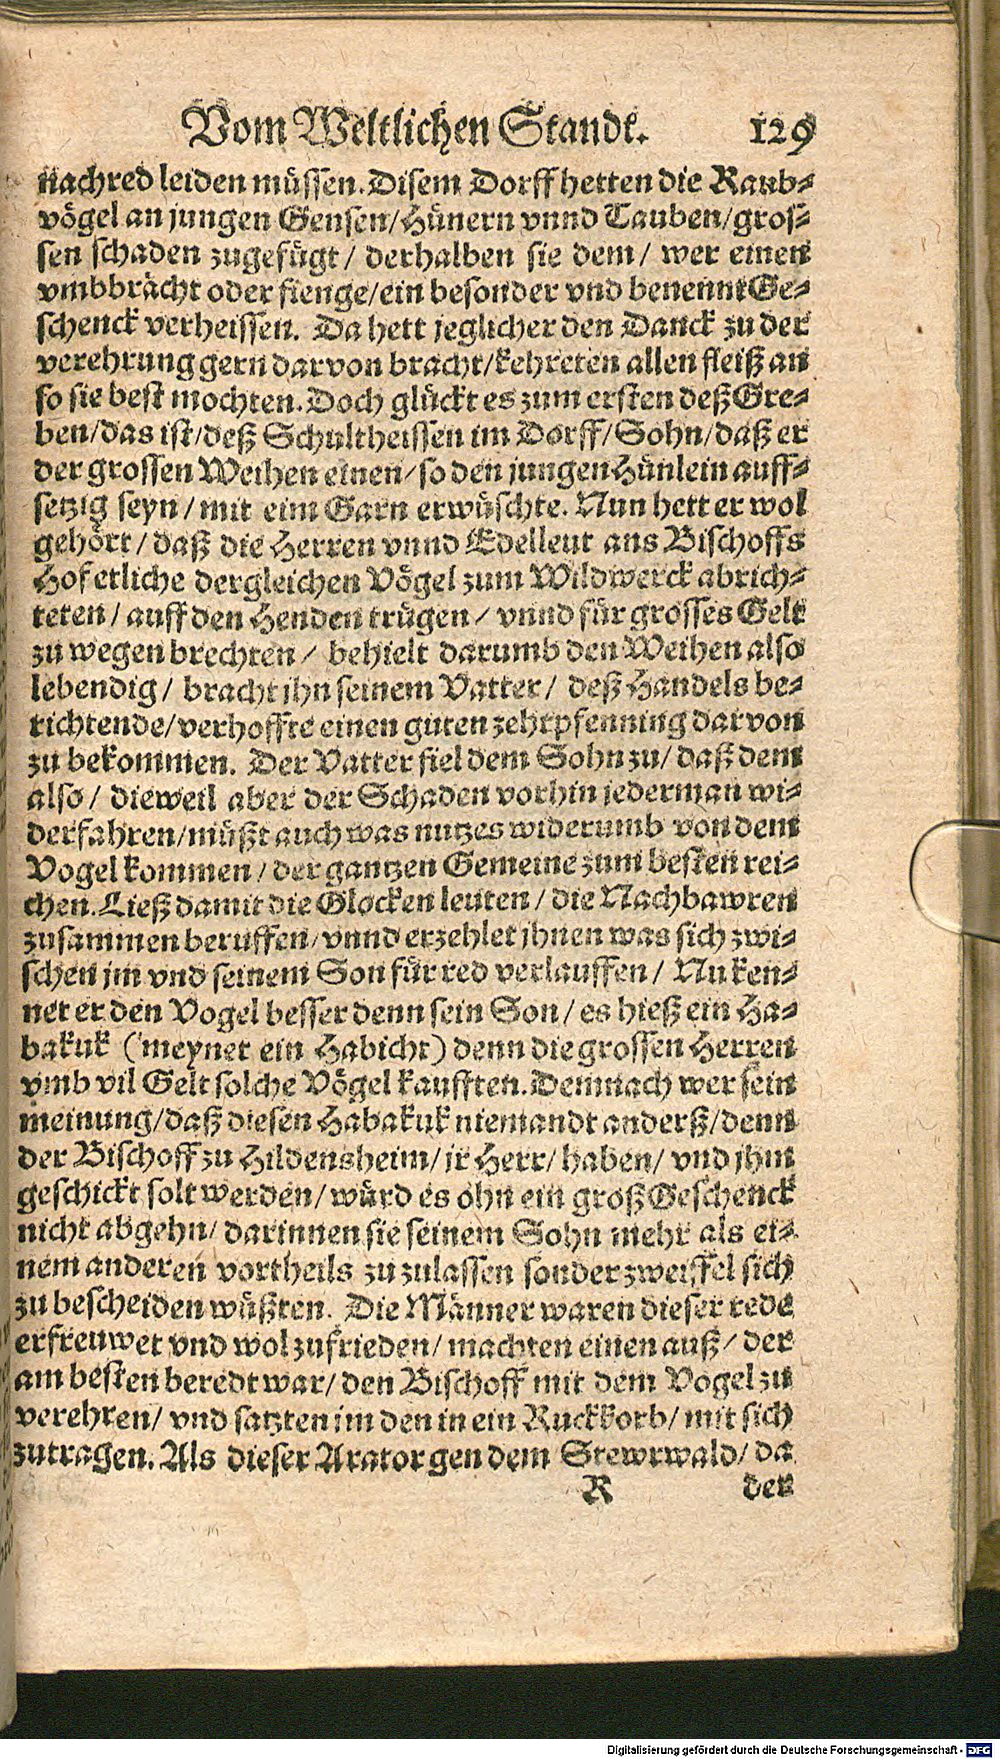 Vom Weltlichen Standt. 129
nachred leiden müssen. Disem Dorff hetten die Raub-
vögel an jungen Gensen/Hünern vnnd Tauben/gros-
sen schaden zugefügt/ derhalben sie dem/ wer einen
vmbbrächt oder fienge/ein besonder vnd benennt Ge-
schenck verheissen. Da hett jeglicher den Danck zu der
verehrung gern darvon bracht/kehreten allen fleiß an
so sie best mochten. Doch glückt es zum ersten deß Gre-
ben/das ist/deß Schultheissen im Dorff/Sohn/daß er
der grossen Weihen einen/so den jungen Hünlein auff-
setzig seyn/mit eim Garn erwüschte. Nun hett er wol
gehört/daß die Herren vnnd Edelleut ans Bischoffs
Hof etliche dergleichen Vögel zum Wildwerck abrich-
teten/auff den Henden trügen/ vnnd für grosses Gelt
zu wegen brechten/ behielt darumb den Weihen also
lebendig/ bracht jhn seinem Vatter/ deß Handels be-
richtende/verhoffte einen guten zehrpfenning darvon
zu bekommen. Der Vatter fiel dem Sohn zu/ daß dem
also/ dieweil aber der Schaden vorhin jederman wi-
derfahren/müßt auch was nutzes widerumb von dem
Vogel kommen/der gantzen Gemeine zum besten rei-
chen. Ließ damit die Glocken leuten/die Nachbawren
zusammen beruffen/vnnd erzehlet jhnen was sich zwi-
schen jm vnd seinem Son für red verlauffen/ Nu ken-
net er den Vogel besser denn sein Son/es hieß ein Ha-
bakuk (meynet ein Habicht) denn die grossen Herren
vmb vil Gelt solche Vögel kaufften. Demnach wer sein
meinung/daß diesen Habakuk niemandt anderß/denn
der Bischoff zu Hildensheim/jr Herr/haben/ vnd jhm
geschickt solt werden/würd es ohn ein groß Geschenck
nicht abgehn/darinnen sie seinem Sohn mehr als ei-
nem anderen vortheils zu zulassen sonder zweiffel sich
zu bescheiden wüßten. Die Männer waren dieser rede
erfreuwet vnd wol zufrieden/machten einen auß/ der
am besten beredt war/den Bischoff mit dem Vogel zu
verehren/ vnd satzten jm den in ein Ruckkorb/mit sich
zutragen. Als dieser Arator gen dem Stewrwald/ da
R der
Digitalisierung gefördert durch die Deutsche Forschungsgemeinschaft - DFG